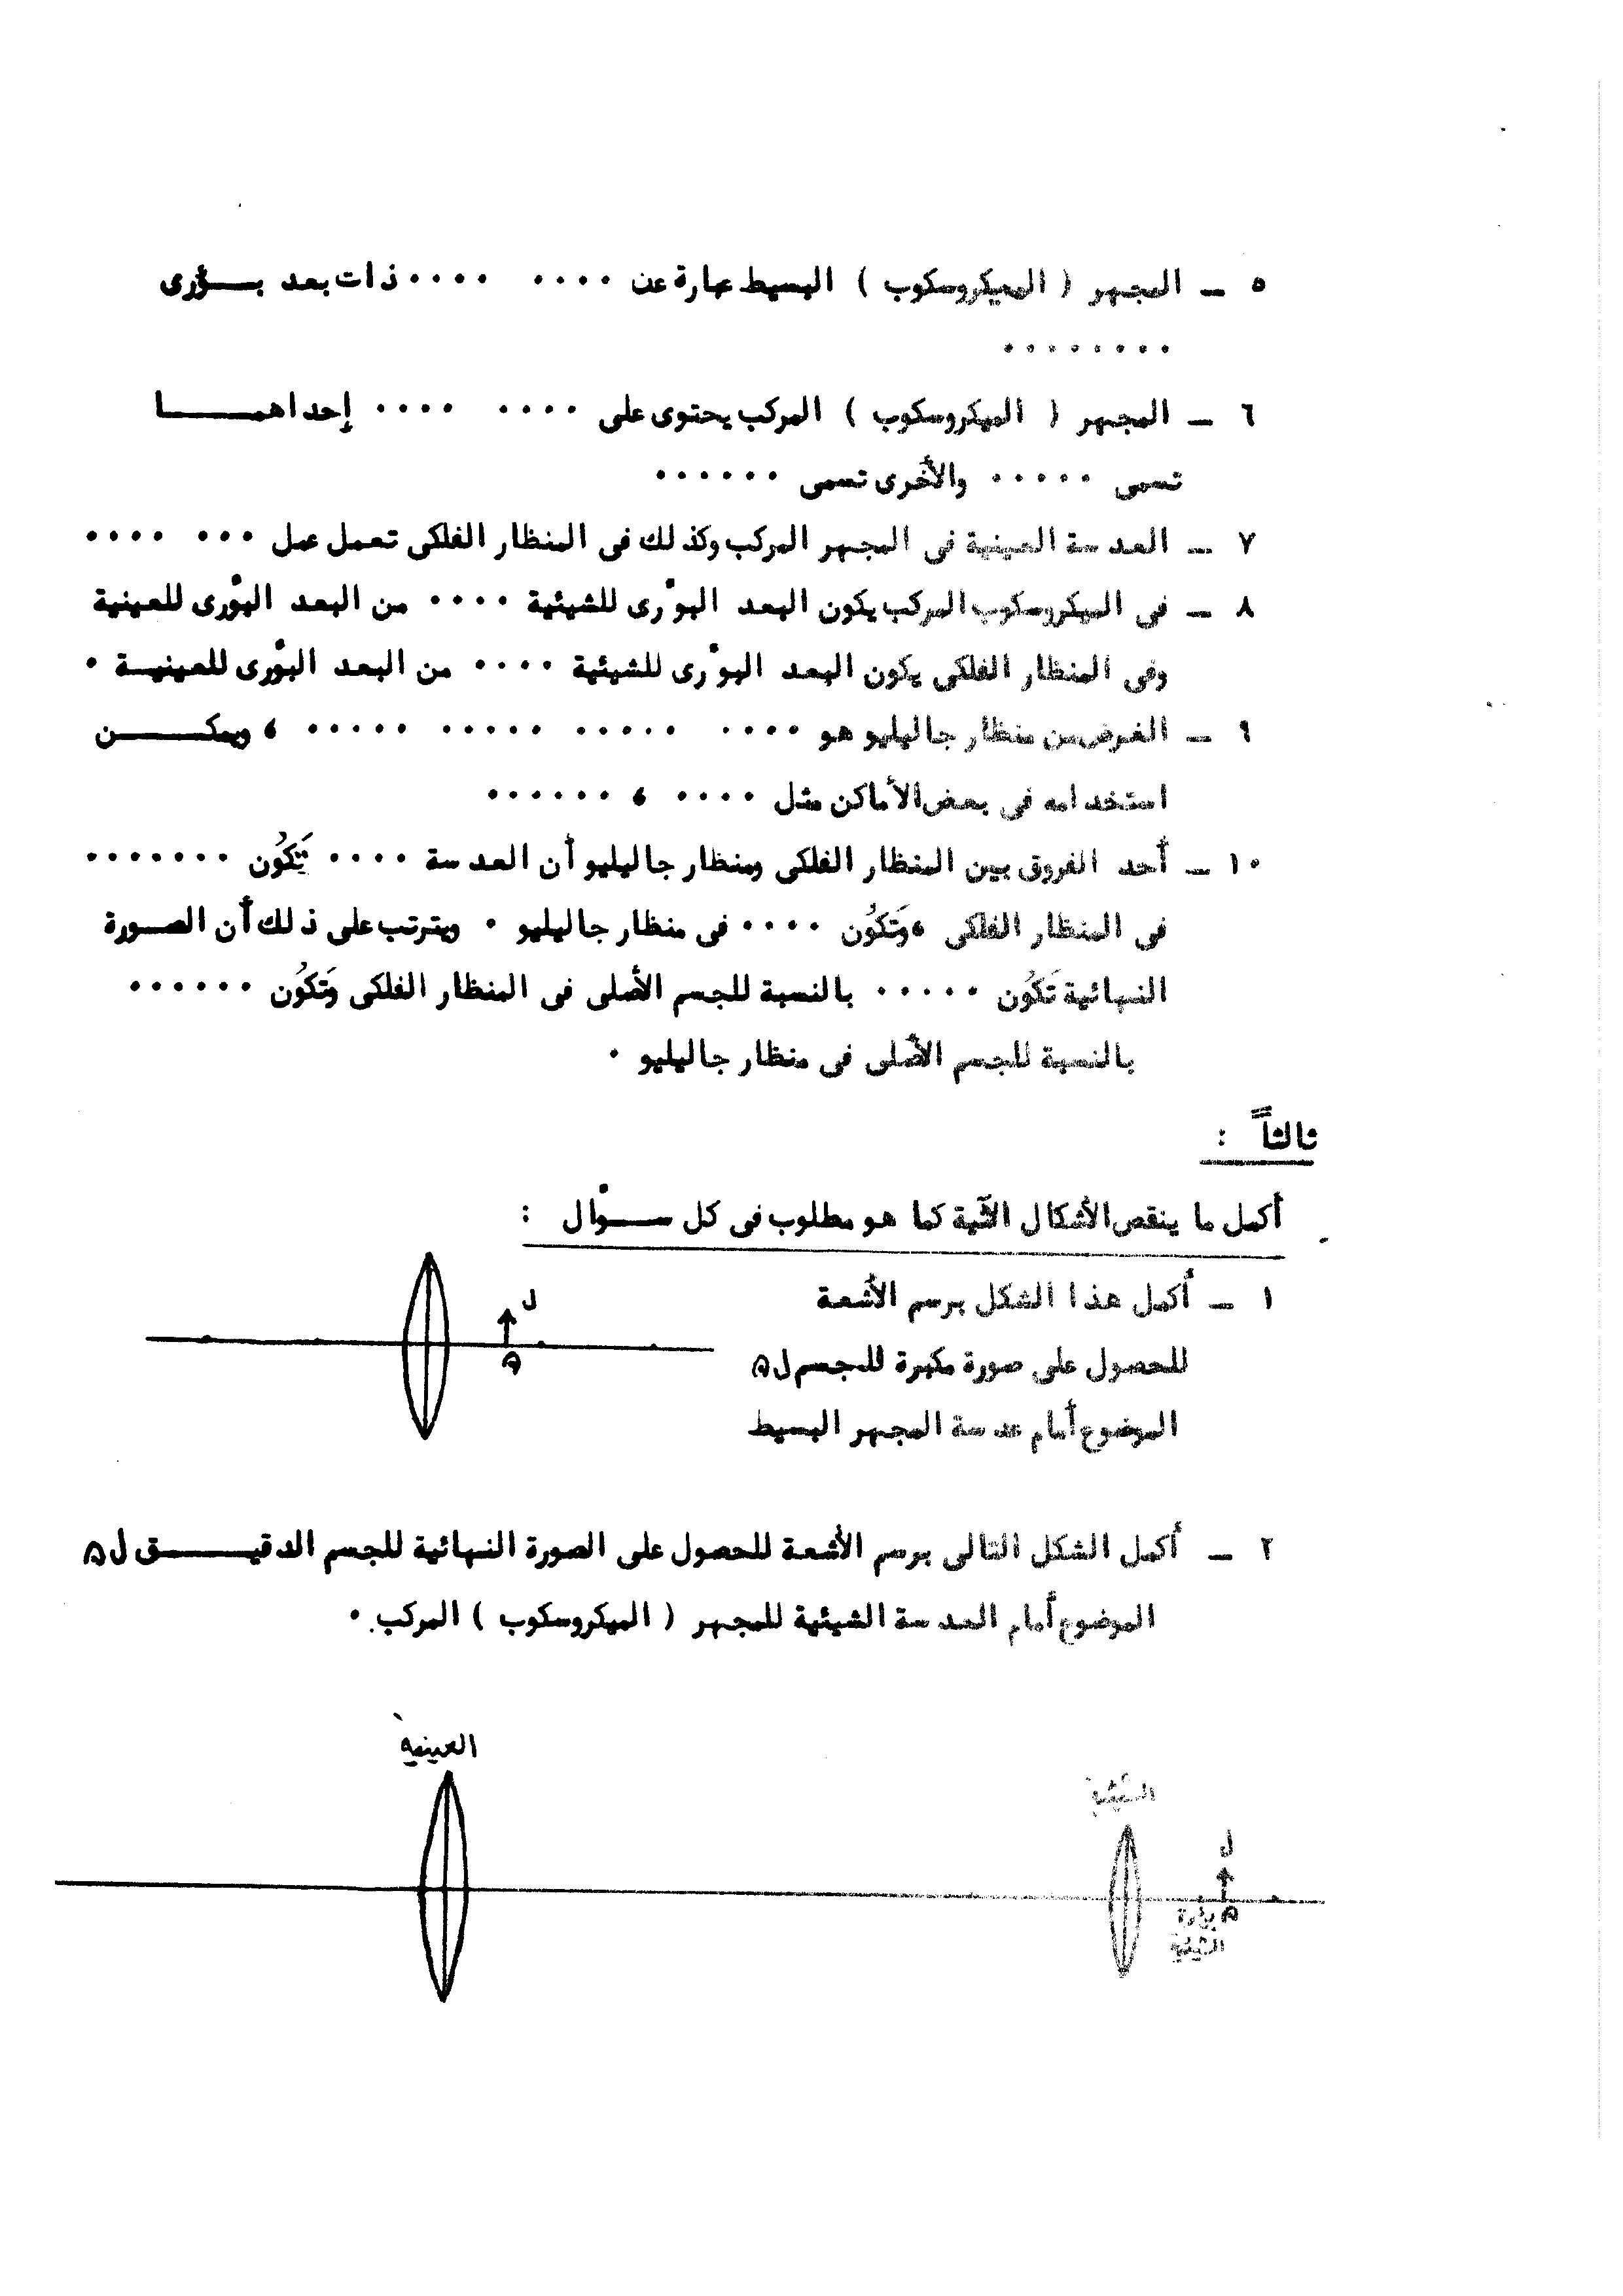 ٥ ــ المجهر ( الميكروسكوب ) البسيط عبارة عن ٠٠٠٠ ٠٠٠٠ ذات بعد بـــؤرى
٠٠٠٠٠٠٠٠
٦ ــ المجهر ( الميكروسكوب ) المركب يحتوى على ٠٠٠٠ ٠٠٠٠ إحداهمـــــا
تسمى ٠٠٠٠٠ والأخرى تسمى ٠٠٠٠٠٠
٧ ــ العدسة العينية فى المجهر المركب وكذلك فى المنظار الفلكى تعمل عمل ٠٠٠ ٠٠٠٠
٨ ــ فى الميكروسكوب المركب يكون البعد البؤرى للشيئية ٠٠٠٠ من البعد البؤرى للعينية
وفى المنظار الفلكى يكون البعد البؤرى للشيئية ٠٠٠٠ من البعد البؤرى للعينيـــة ٠
٩ ــ الغرض من منظار جاليليو هو ٠٠٠٠ ٠٠٠٠٠ ٠٠٠٠٠ ٠٠٠٠٠ ، ويمكـــــن
استخدامه فى بعض الأماكن مثل ٠٠٠٠ ، ٠٠٠٠٠٠
١٠ ــ أحد الفروق بين المنظار الفلكى ومنظار جاليليو أن العدسة ٠٠٠٠ تَكُون ٠٠٠٠٠٠٠
فى المنظار الفلكى ، وَتَكُون ٠٠٠٠ فى منظار جاليليو ٠ ويترتب على ذلك أن الصـورة
النهائية تَكُون ٠٠٠٠٠ بالنسبة للجسم الأصلى فى المنظار الفلكى وَتَكُون ٠٠٠٠٠٠
بالنسبة للجسم الأصلى فى منظار جاليليو ٠
ثالثاً :
أكمل ما ينقص الأشكال الآتية كما هو مطلوب فى كل ســـؤال :
١ ــ أكمل هذا الشكل برسم الأشعة
للحصول على صورة مكبرة للجسم ل ه
الموضوع أمام عدسة المجهر البسيط
ل
ه
٢ ــ أكمل الشكل التالى برسم الأشعة للحصول على الصورة النهائية للجسم الدقيـــــق ل ه
الموضوع أمام العدسة الشيئية للمجهر ( الميكروسكوب ) المركب ٠
العينية
الشيئية
ل
ه
بؤرة
الشيئية